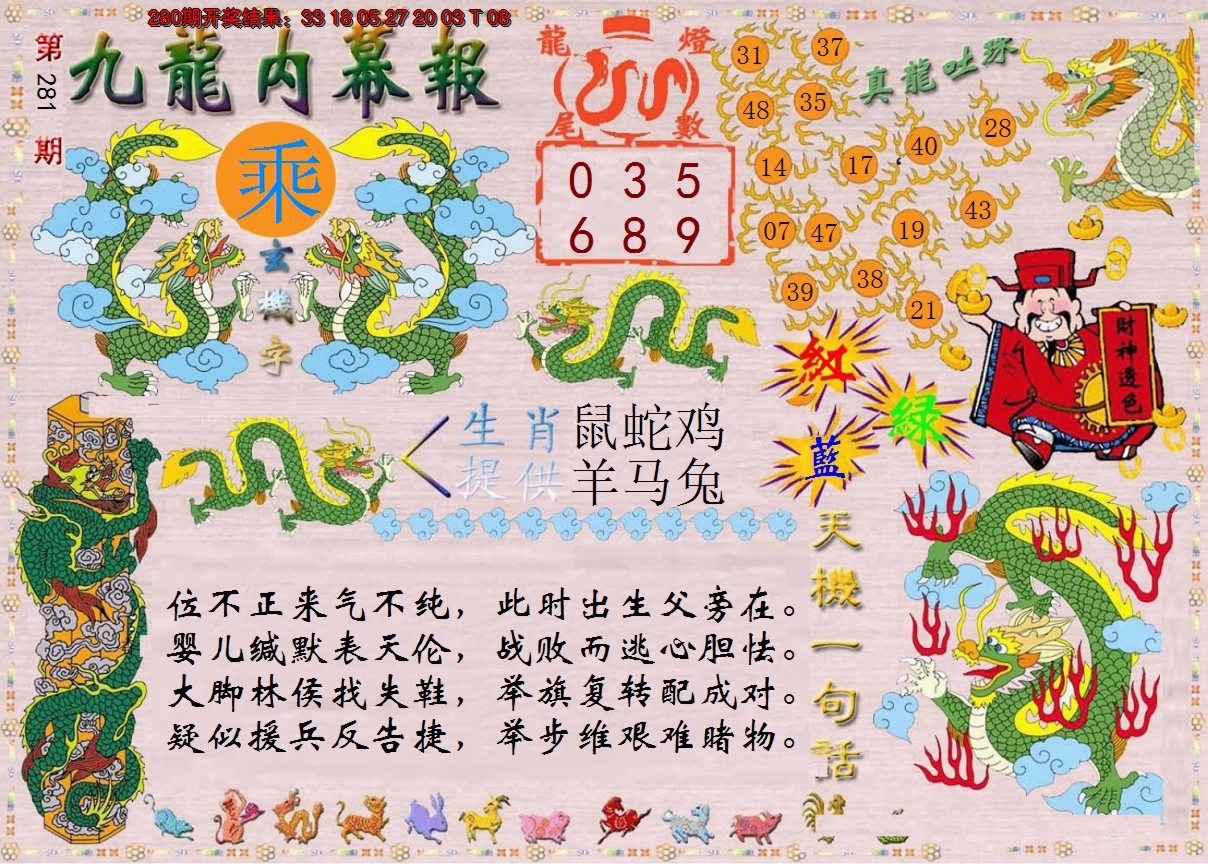 280期开奖结果：33 18 05 27 20 03 T 08
第281期
九龍内幕報
乘
玄機字
龍燈
尾數
0 3 5
6 8 9
真龍吐珠
31 37
48 35
14 17 40 28
07 47 19 43
39 38 21
財神透色
紅
緑
藍
生肖 鼠蛇鸡
提供 羊马兔
天機一句話
位不正来气不纯，此时出生父旁在。
婴儿缄默表天伦，战败而逃心胆怯。
大脚林侯找失鞋，举旗复转配成对。
疑似援兵反告捷，举步维艰难睹物。